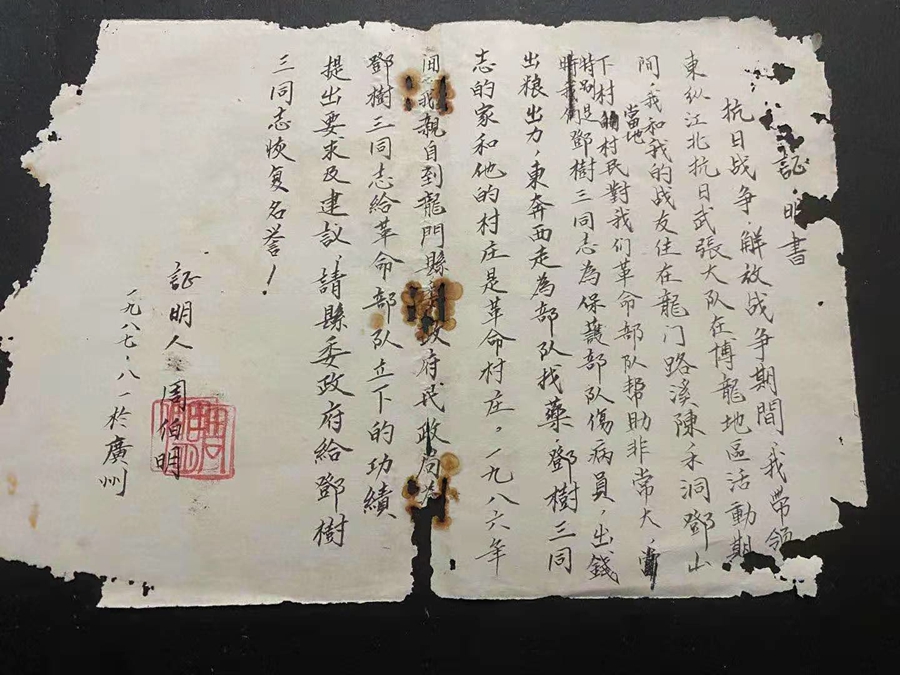 証明書
抗日战争，解放战争期間，我带领
東纵江北抗日武張大队在博龍地區活動期
间，我和我的战友住在龍门路溪陳禾洞鄧山
下村当地村民對我们革命部队帮助非常大，
特别是鄧樹三同志為保護部队傷病員，出錢
出粮出力，東奔西走為部队找藥，鄧樹三同
志的家和他的村庄是革命村庄。一九八六年
间我親自到龍門縣政府民政局
鄧樹三同志給革命部队立下的功績
提出要求及建议，請縣委政府給鄧樹
三同志恢复名誉！
証明人 周伯明
一九八七．八．一於廣州